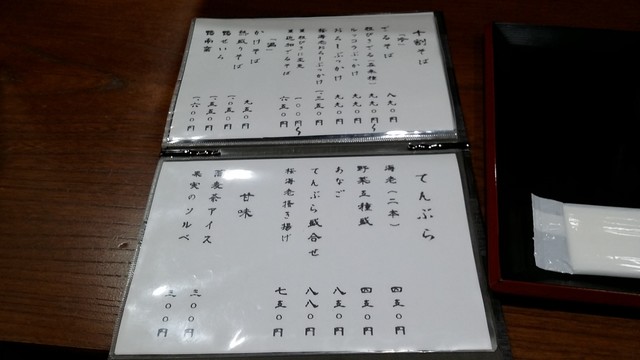 十割そば
「冷」
ざるそば 八九〇円
粗びきざる(五食限) 九九〇円〜
ルッコラぶっかけ 九九〇円
おろしぶっかけ 九九〇円
桜海老おろしぶっかけ 一二五〇円
一〇〇円〜
六五〇円
「温」
かけそば 九五〇円
熱盛りそば 一〇五〇円
鴨せいろ 一五五〇円
鴨南蛮 一六〇〇円
てんぷら
海老(二本) 四五〇円
野菜五種盛 四五〇円
あなご 八五〇円
てんぷら盛合せ 八八〇円
桜海老掻き揚げ 七五〇円
甘味
蕎麦茶アイス 三〇〇円
果実のソルベ 三〇〇円